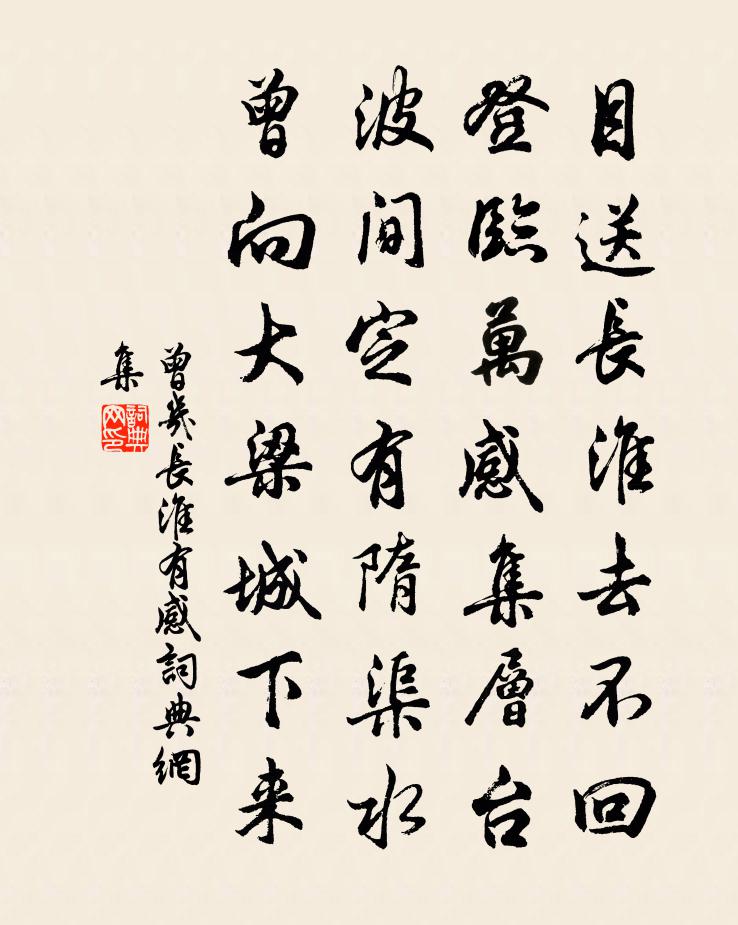 目送長淮去不回
登臨萬感集層台
波间定有隋渠水
曾向大梁城下来
曾幾長淮有感詞典網
集
詞典
网印